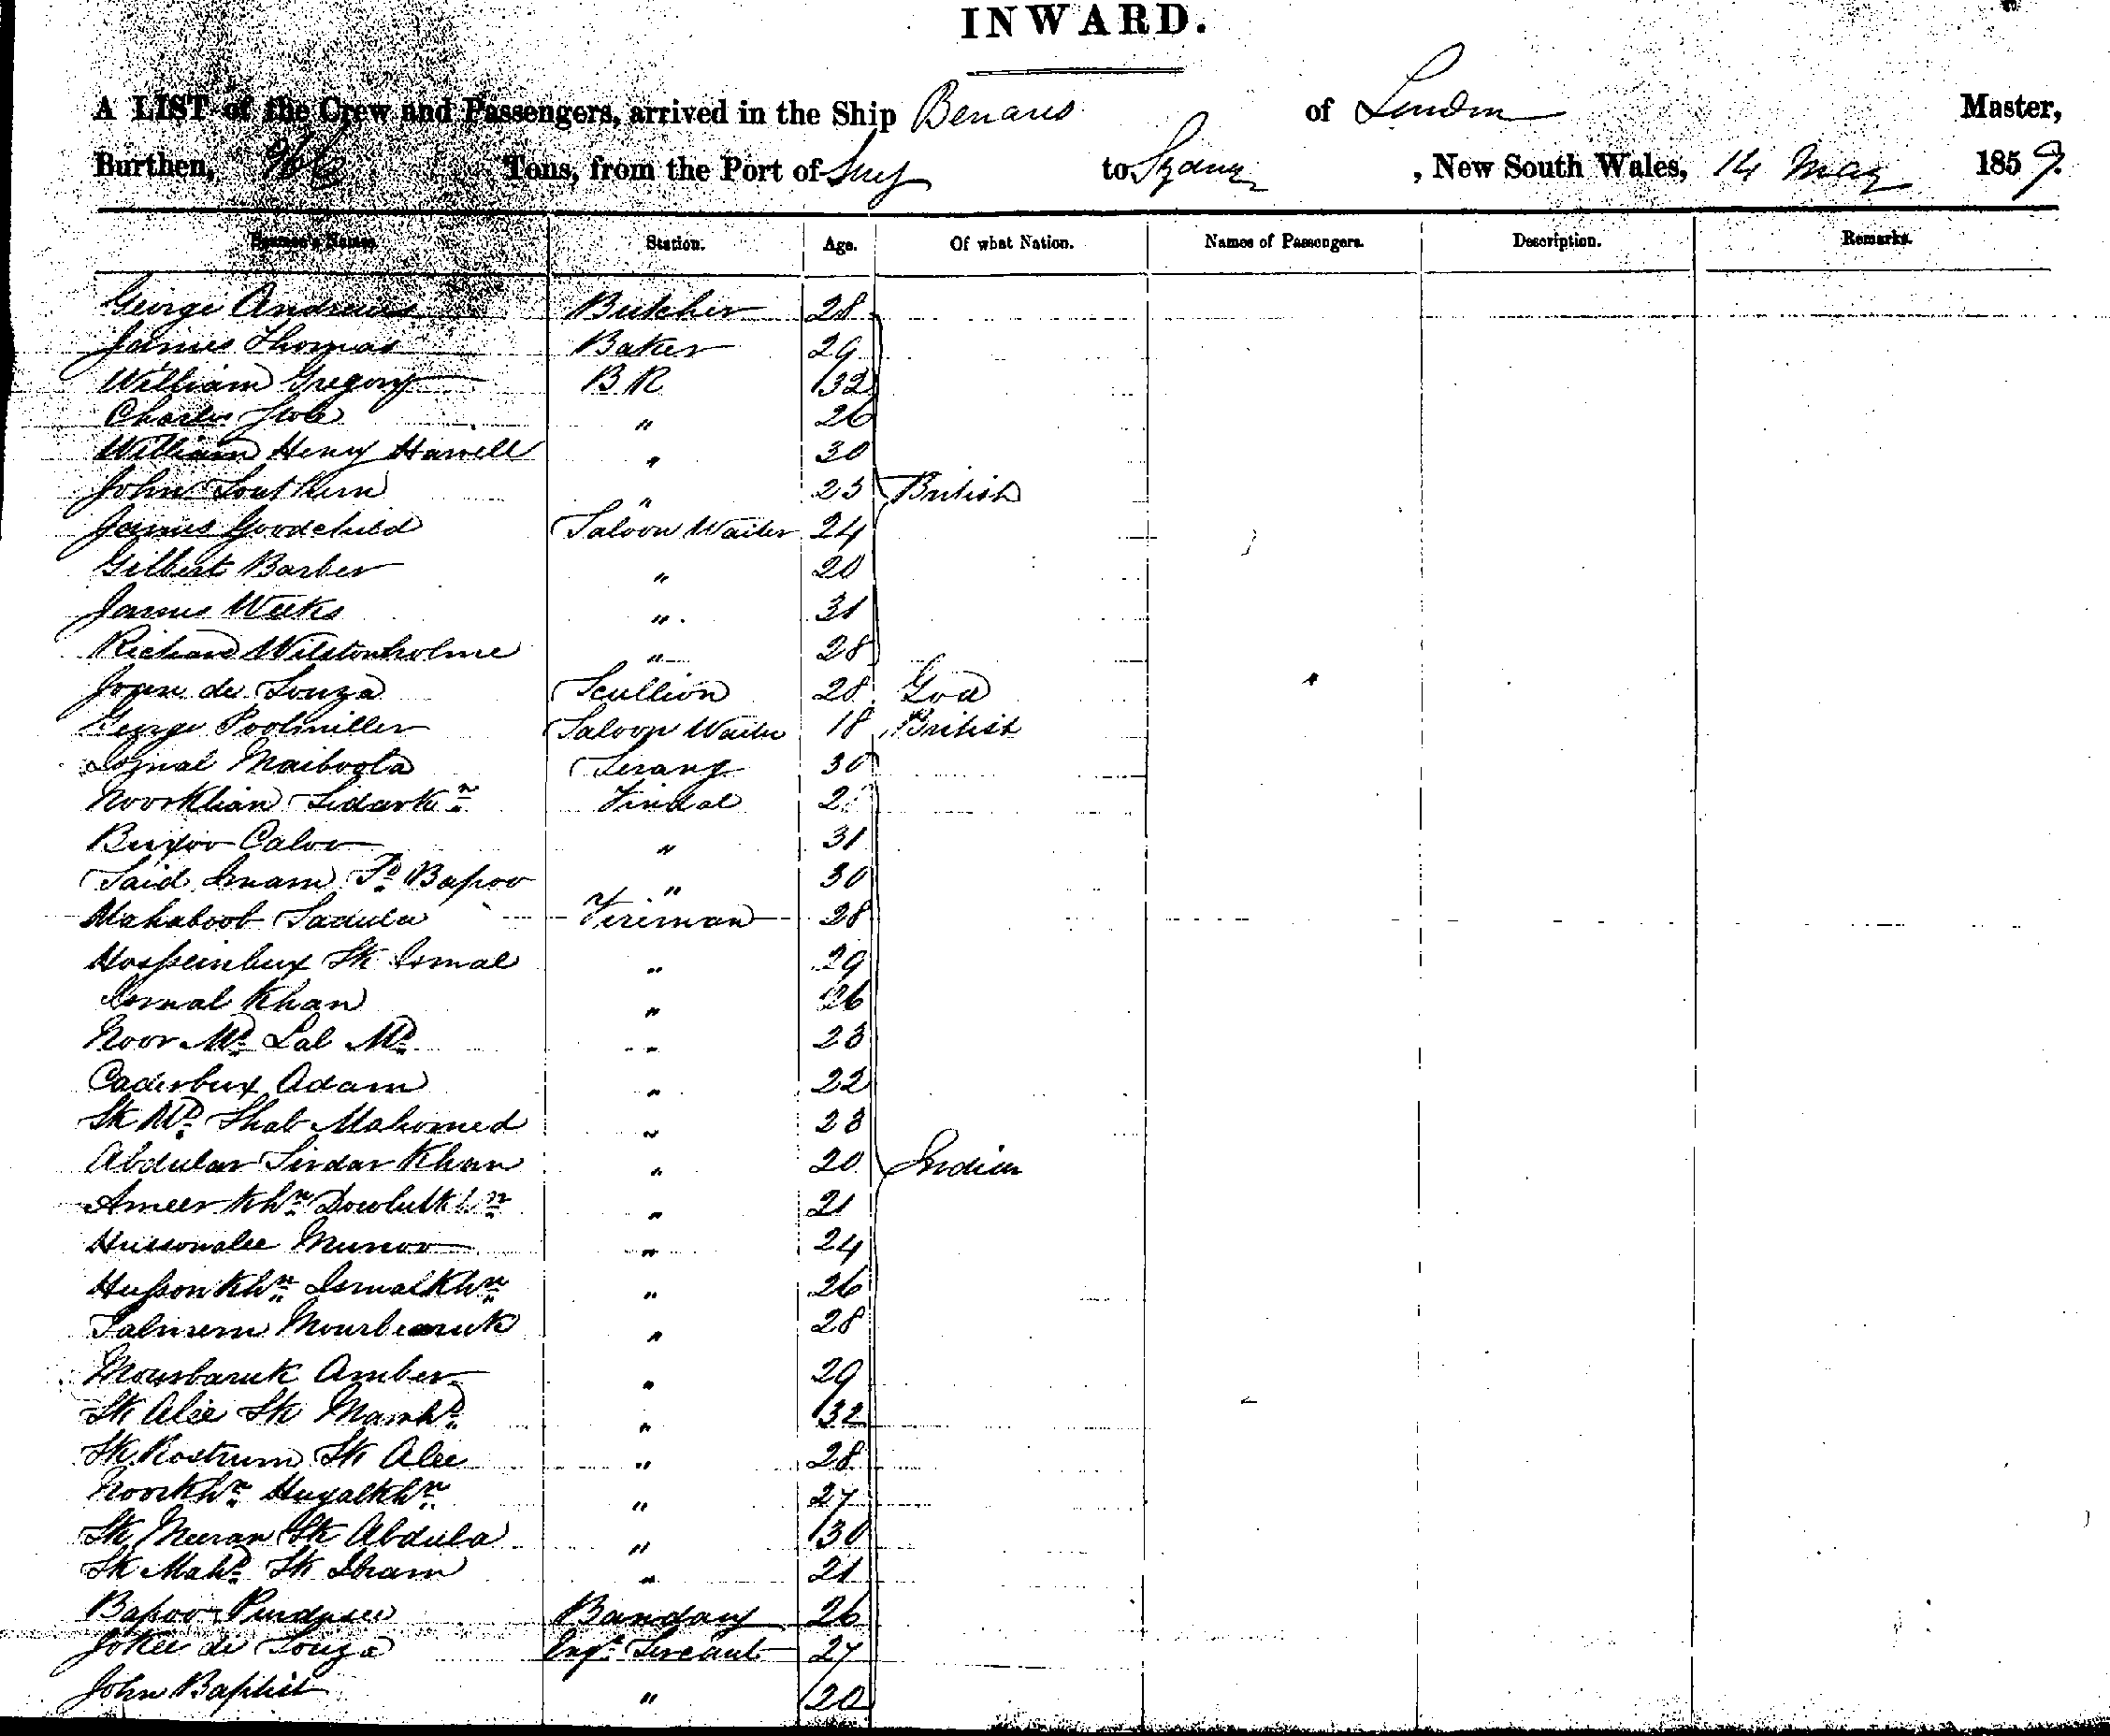 INWARD.
A LIST of the Crew and Passengers, arrived in the Ship Benares of London Master,
Burthen, Tons, from the Port of Suez to Sydney, New South Wales, 14 May 1859.
Seamen's Names. Station. Age. Of what Nation. Names of Passengers. Description. Remarks.
George Andrews Butcher 28
James Thomas Baker 29
William Gregory BR 32
Charles 26
William Henry Harvell " 30
John Southern " 25 British
James Goodchild Saloon Waiter 24
Gilbert Barber " 20
James Weeks " 31
Richard Wilstenholme " 28
de Souza Scullion 28 Goa
George Poolmiller Saloon Waiter 18 British
Maiboola Serang 30
Tindal
Buxoo Caloo " 31
Said Imam Bapoo " 30
Mahaboob Sadula Fireman 28
Hosseinbux Sk Ismal " 29
Ismal Khan " 26
Noor Md Lal Md " 23
Caderbux Adam " 22
Sk Md Shab Mahomed " 23
Abdular Sirdar Khan " 20 Indian
Ameer Khn Dowlutkhn " 21
Hussonalee Munoo " 24
Husson Khn Ismal Khn " 26
Mourbaruk " 28
Mourbaruk Amber " 29
Sk Alee Sk " 32
Sk Rostrum Sk Alee " 28
Noorkhn Huyalkhn " 27
Sk Meeran Sk Abdula " 30
Sk Mahd Sk Ibram " 21
Bapoo 26
de Souza Engr Servant 27
John Baptist " 20